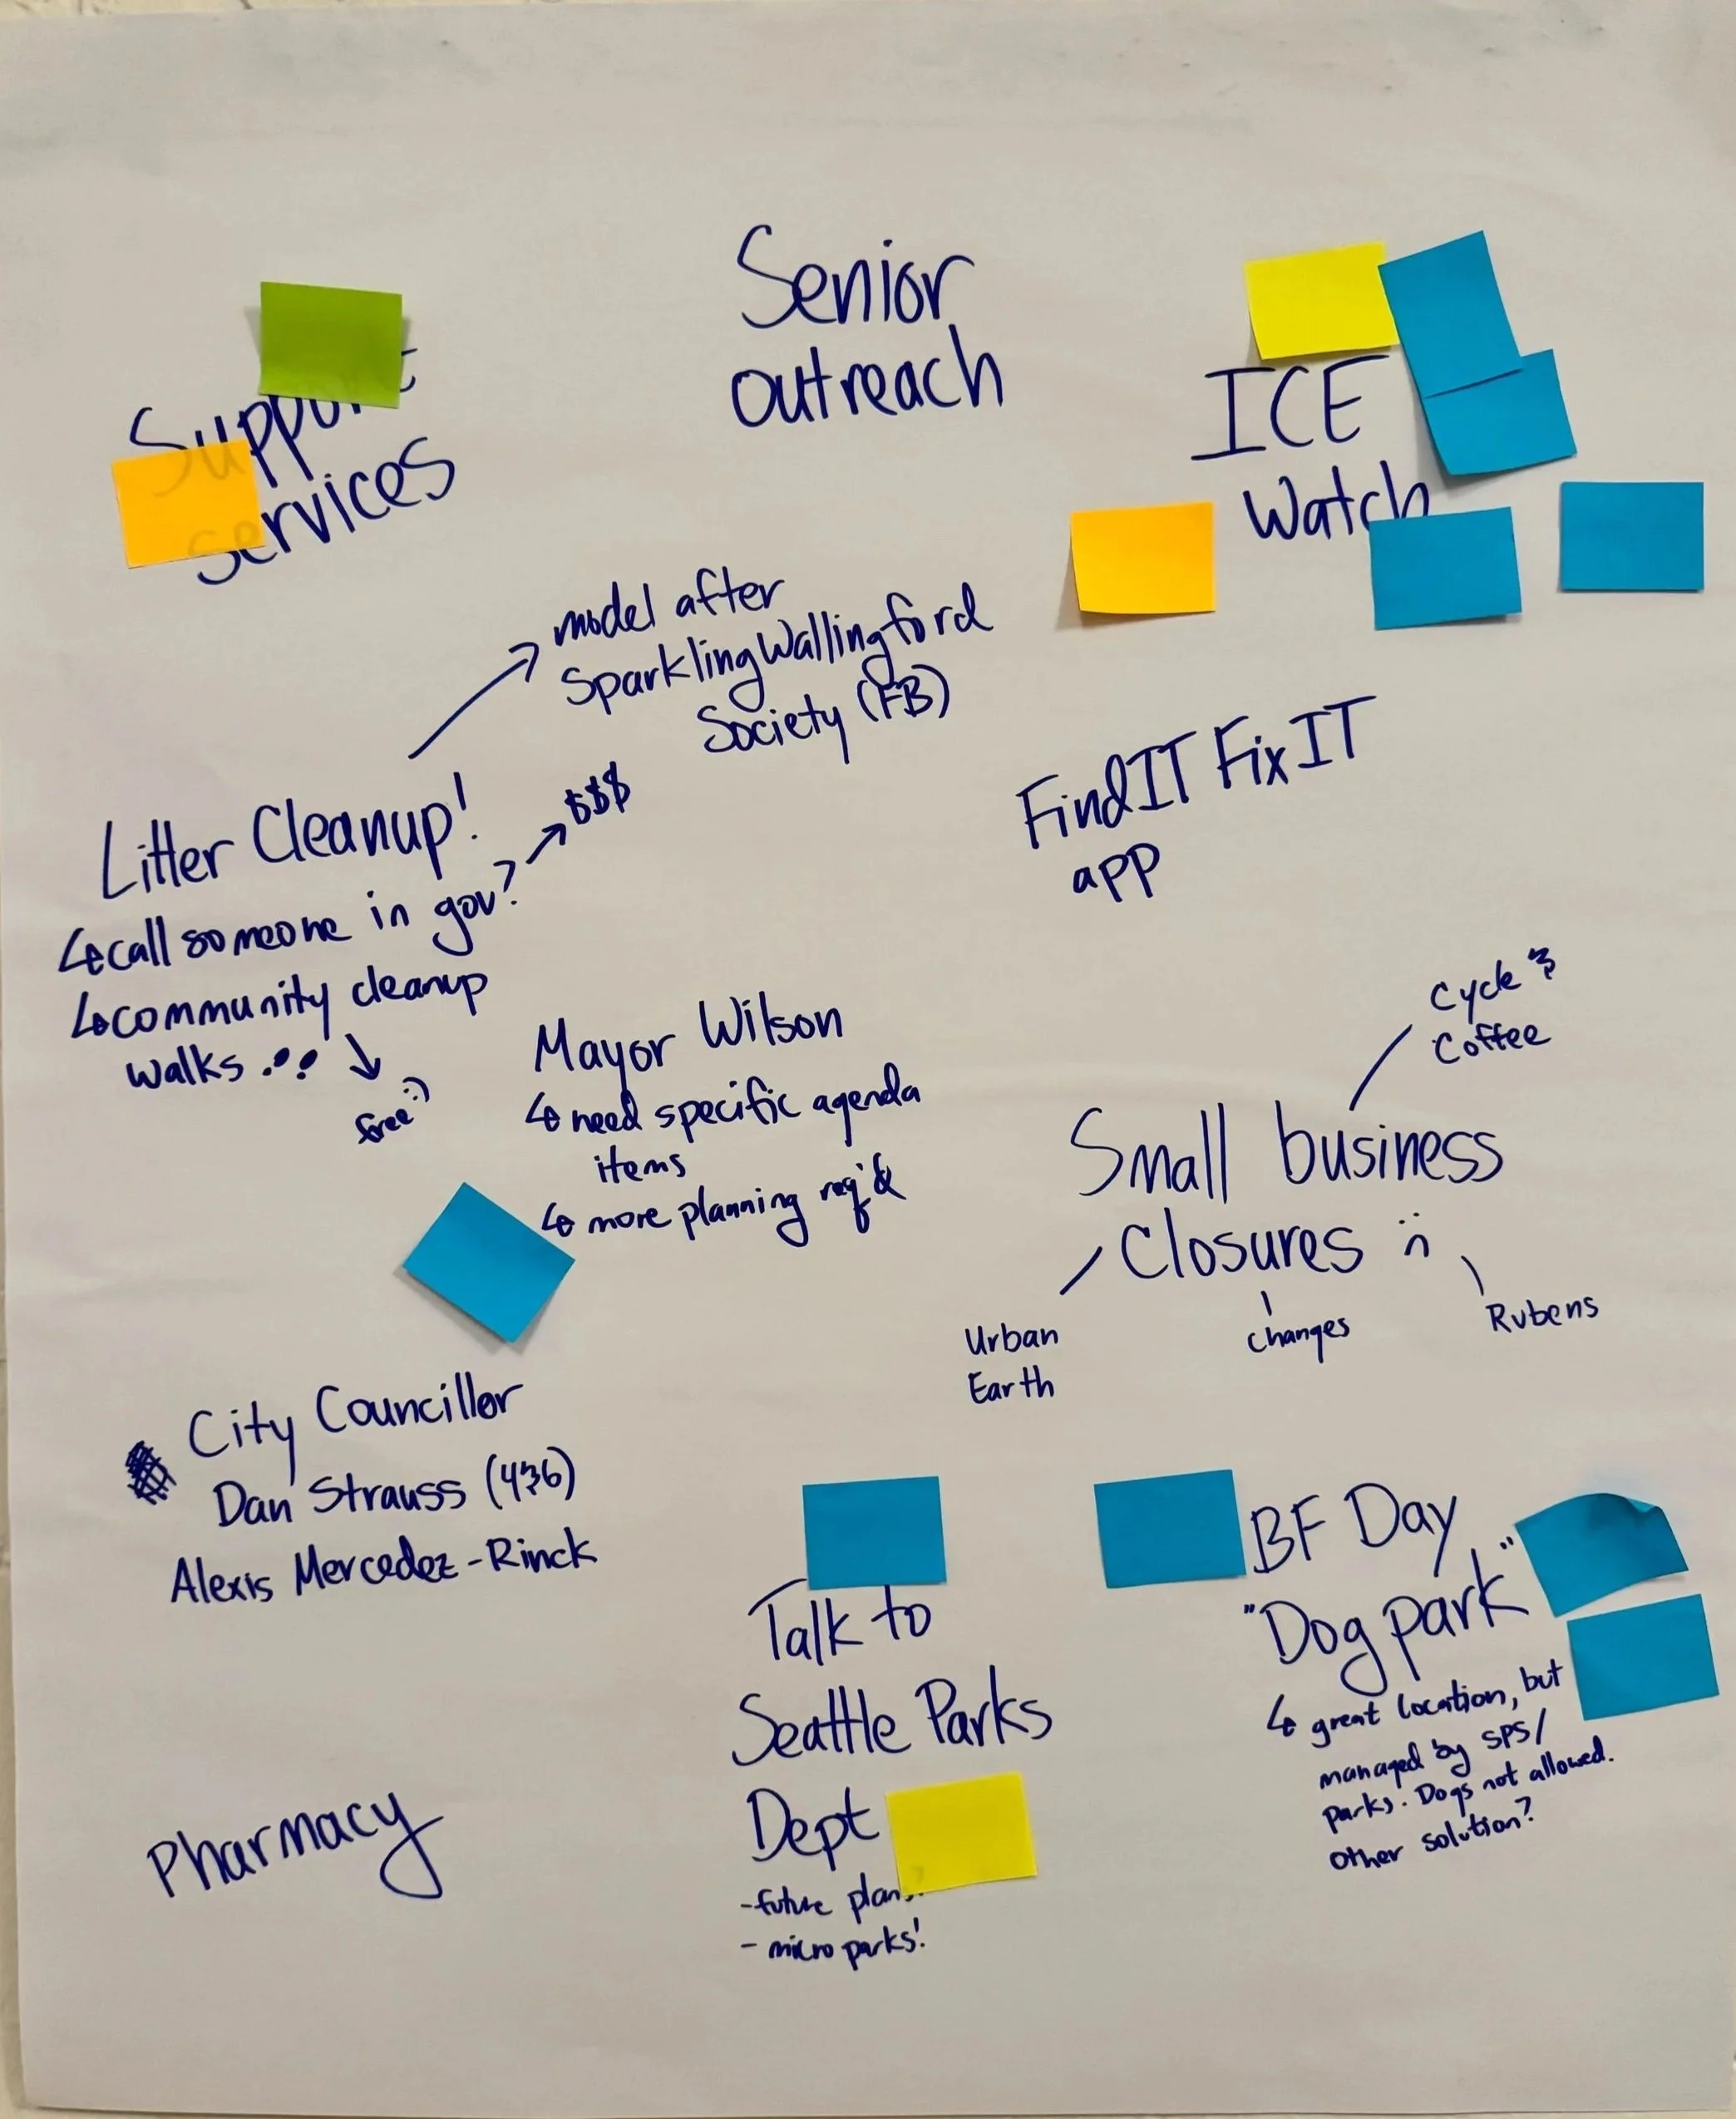 Senior
outreach
Support
Services
ICE
Watch
model after
Sparkling Wallingford
Society (FB)
FindIT FixIT
app
Litter Cleanup!
↳ call someone in gov? → $$$
↳ community cleanup
walks
↓
free :)
Mayor Wilson
↳ need specific agenda
items
↳ more planning req'd
Cycle &
Coffee
Small business
Closures :(
Urban
Earth
changes
Rubens
City Councillor
Dan Strauss (4&6)
Alexis Mercedez-Rinck
Talk to
Seattle Parks
Dept
- future plans?
- micro parks!
BF Day
"Dog park"
↳ great location, but
managed by SPS/
Parks. Dogs not allowed.
Other solution?
Pharmacy